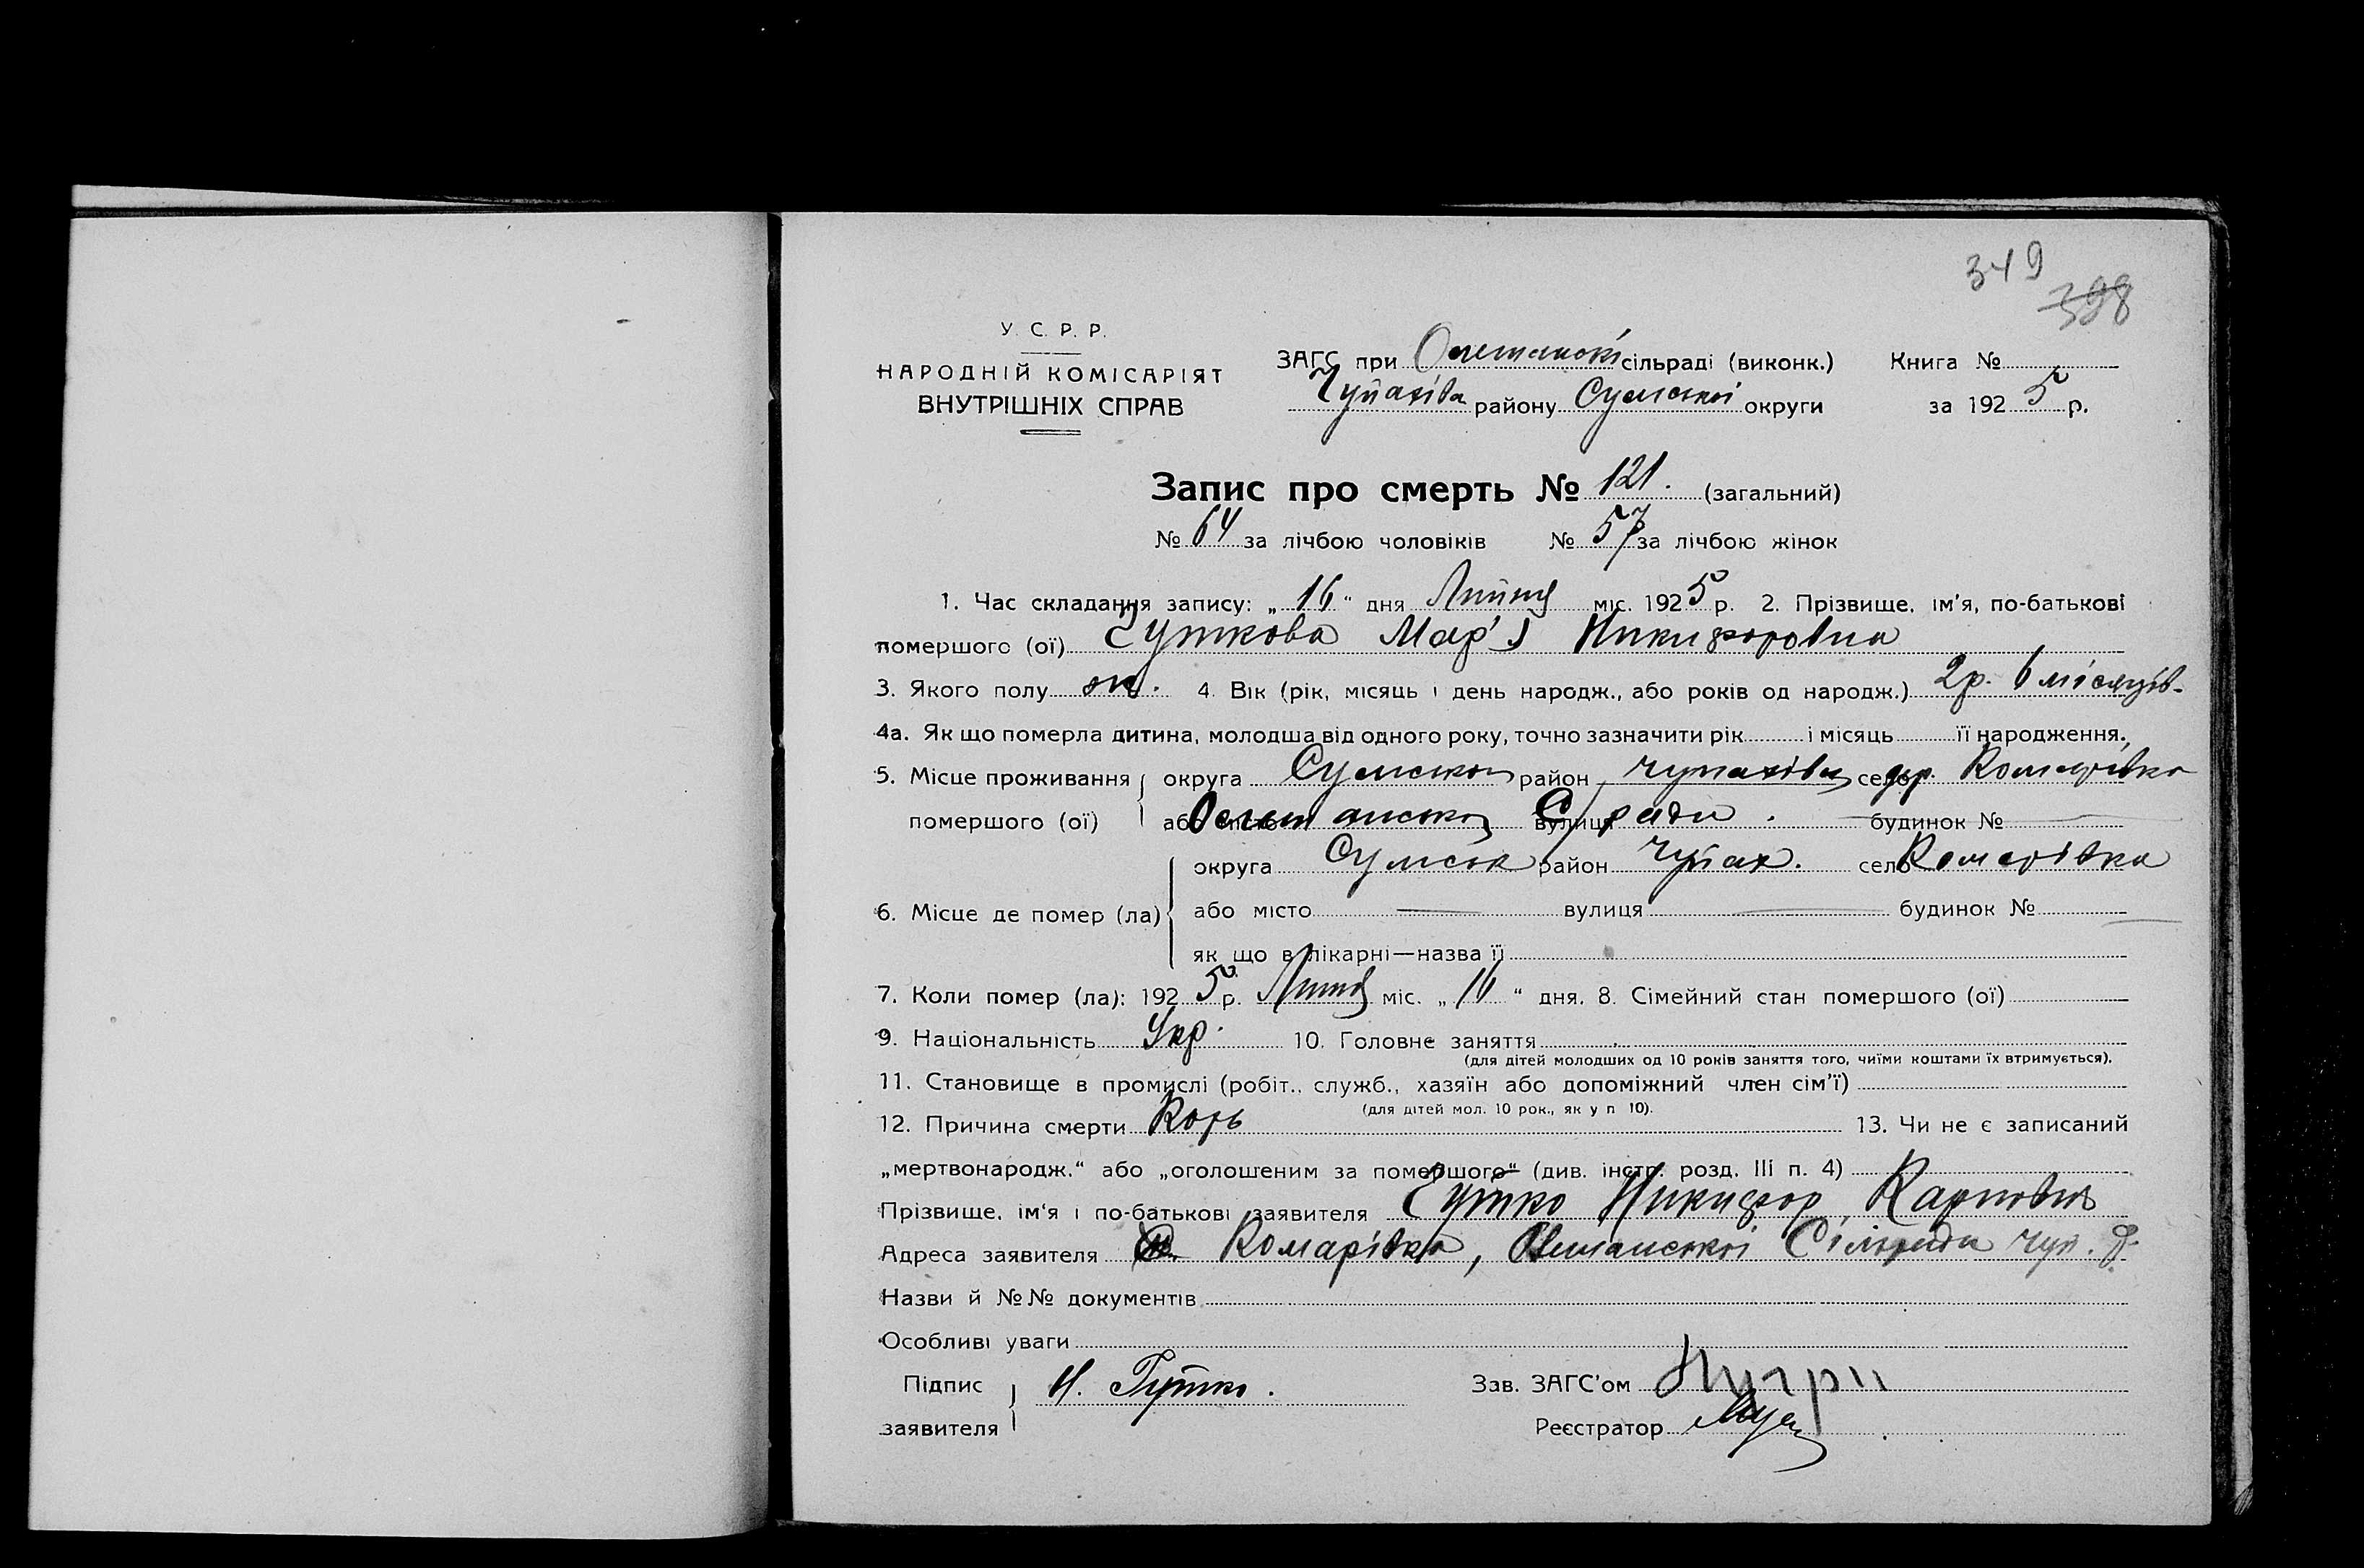 349
398
У. С. Р. Р.
НАРОДНІЙ КОМІСАРІЯТ
ВНУТРІШНІХ СПРАВ
ЗАГС при сільраді (виконк.) Книга №
району Сумської округи за 1925 р.
Запис про смерть № 121. (загальний)
№ 64 за лічбою чоловіків № 57 за лічбою жінок
1. Час складання запису: „ 16 “ дня Липня міс. 1925 р. 2. Прізвище, ім'я, по-батькові
помершого (ої) Гуткова Мар'я Никифоровна
3. Якого полу ж. 4. Вік (рік, місяць і день народж., або років од народж.) 2 р. 6 місяців
4а. Як що померла дитина, молодша від одного року, точно зазначити рік і місяць її народження.
5. Місце проживання округа Сумської район село Комарівка
помершого (ої) або місто вулиця С/ради. будинок №
округа Сумськ район Чупах. село Комарівка
6. Місце де помер (ла) або місто — вулиця — будинок № —
як що в лікарні—назва її
7. Коли помер (ла): 1925 р. Липня міс. „ 16 “ дня. 8. Сімейний стан помершого (ої)
9. Національність Укр. 10. Головне заняття
(для дітей молодших од 10 років заняття того, чиїми коштами їх втримується).
11. Становище в промислі (робіт., служб., хазяїн або допоміжний член сім'ї)
(для дітей мол. 10 рок., як у п 10).
12. Причина смерти Корь 13. Чи не є записаний
„мертвонародж.“ або „оголошеним за помершого“ (див. інстр. розд. III п. 4)
Прізвище, ім'я і по-батькові заявителя Гутко Никифор Карпович
Адреса заявителя Комарівка, Сільради Чуп. р.
Назви й №№ документів
Особливі уваги
Підпис Н. Гутко. Зав. ЗАГС'ом
заявителя Реєстратор